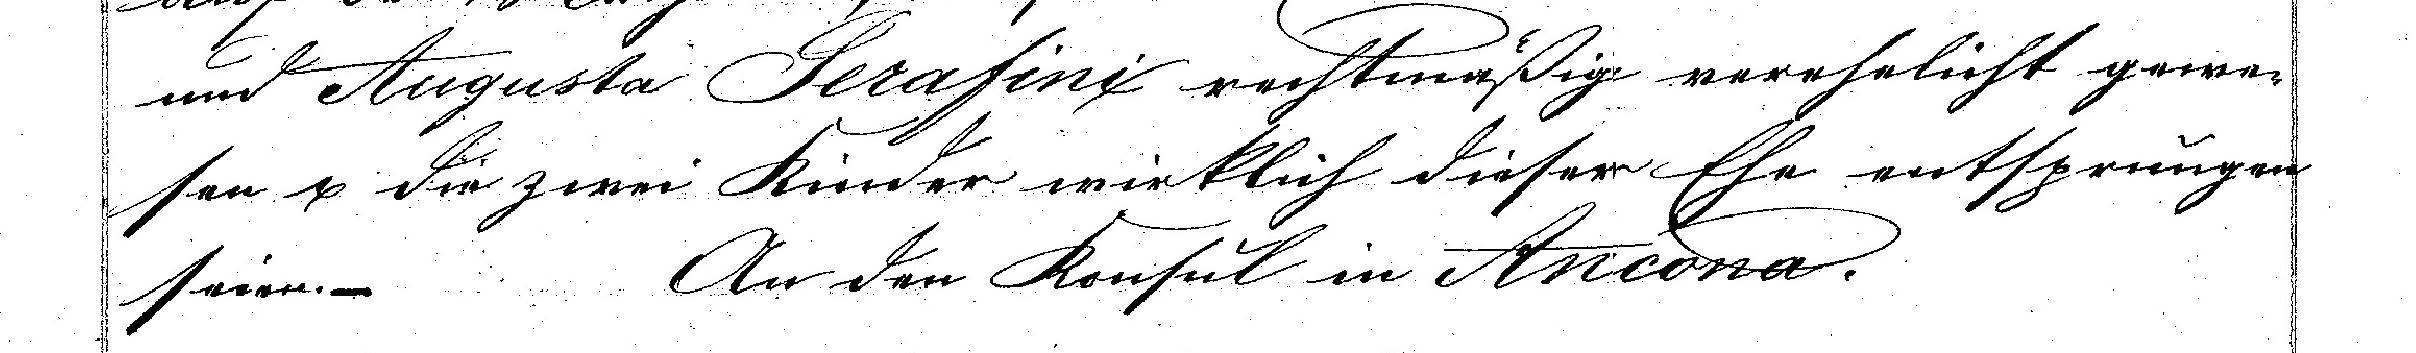 und Augusta Serafini rechtmäßig verehelicht gewe-
sen & die zwei Kinder wirklich dieser Ehe entsprungen
seien. — An den Konsul in Ancona.